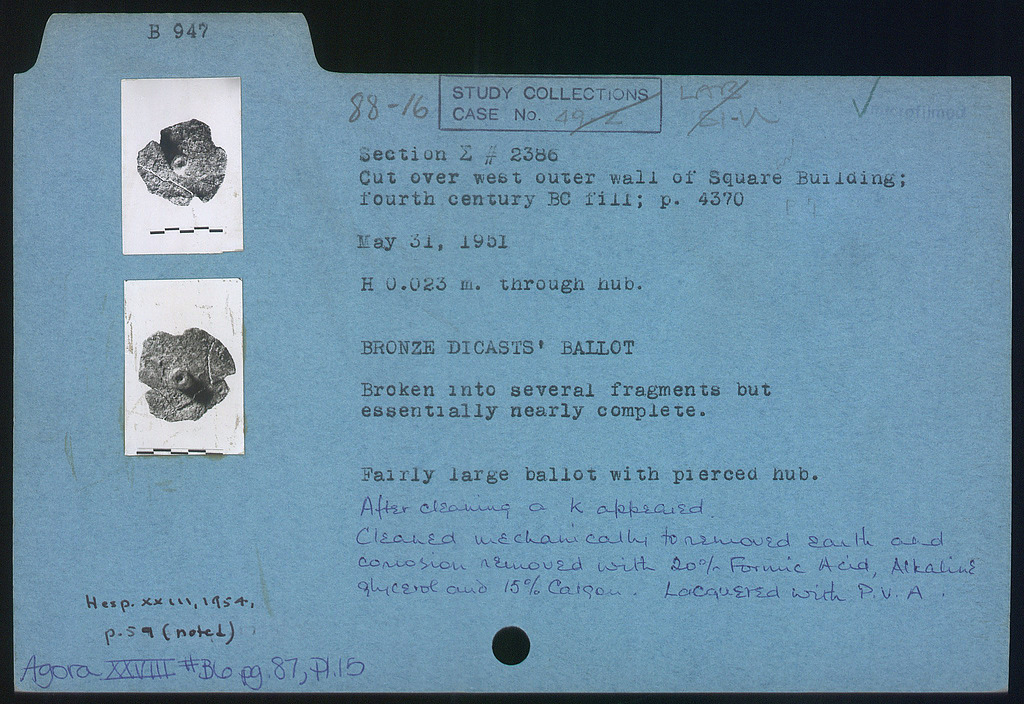 B 947
88-16
STUDY COLLECTIONS
CASE No. 49-2
LAB
Section Σ # 2386
Cut over west outer wall of Square Building;
fourth century BC fill; p. 4370
May 31, 1951
H 0.023 m. through hub.
BRONZE DICASTS' BALLOT
Broken into several fragments but
essentially nearly complete.
Fairly large ballot with pierced hub.
After cleaning a K appeared.
Cleaned mechanically to removed earth and
corrosion removed with 20% Formic Acid, Alkaline
glycerol and 15% Calgon. Lacquered with P.V.A.
Hesp. XXIII, 1954,
p. 59 (noted)
Agora XXVIII #B6 pg. 87, Pl. 15